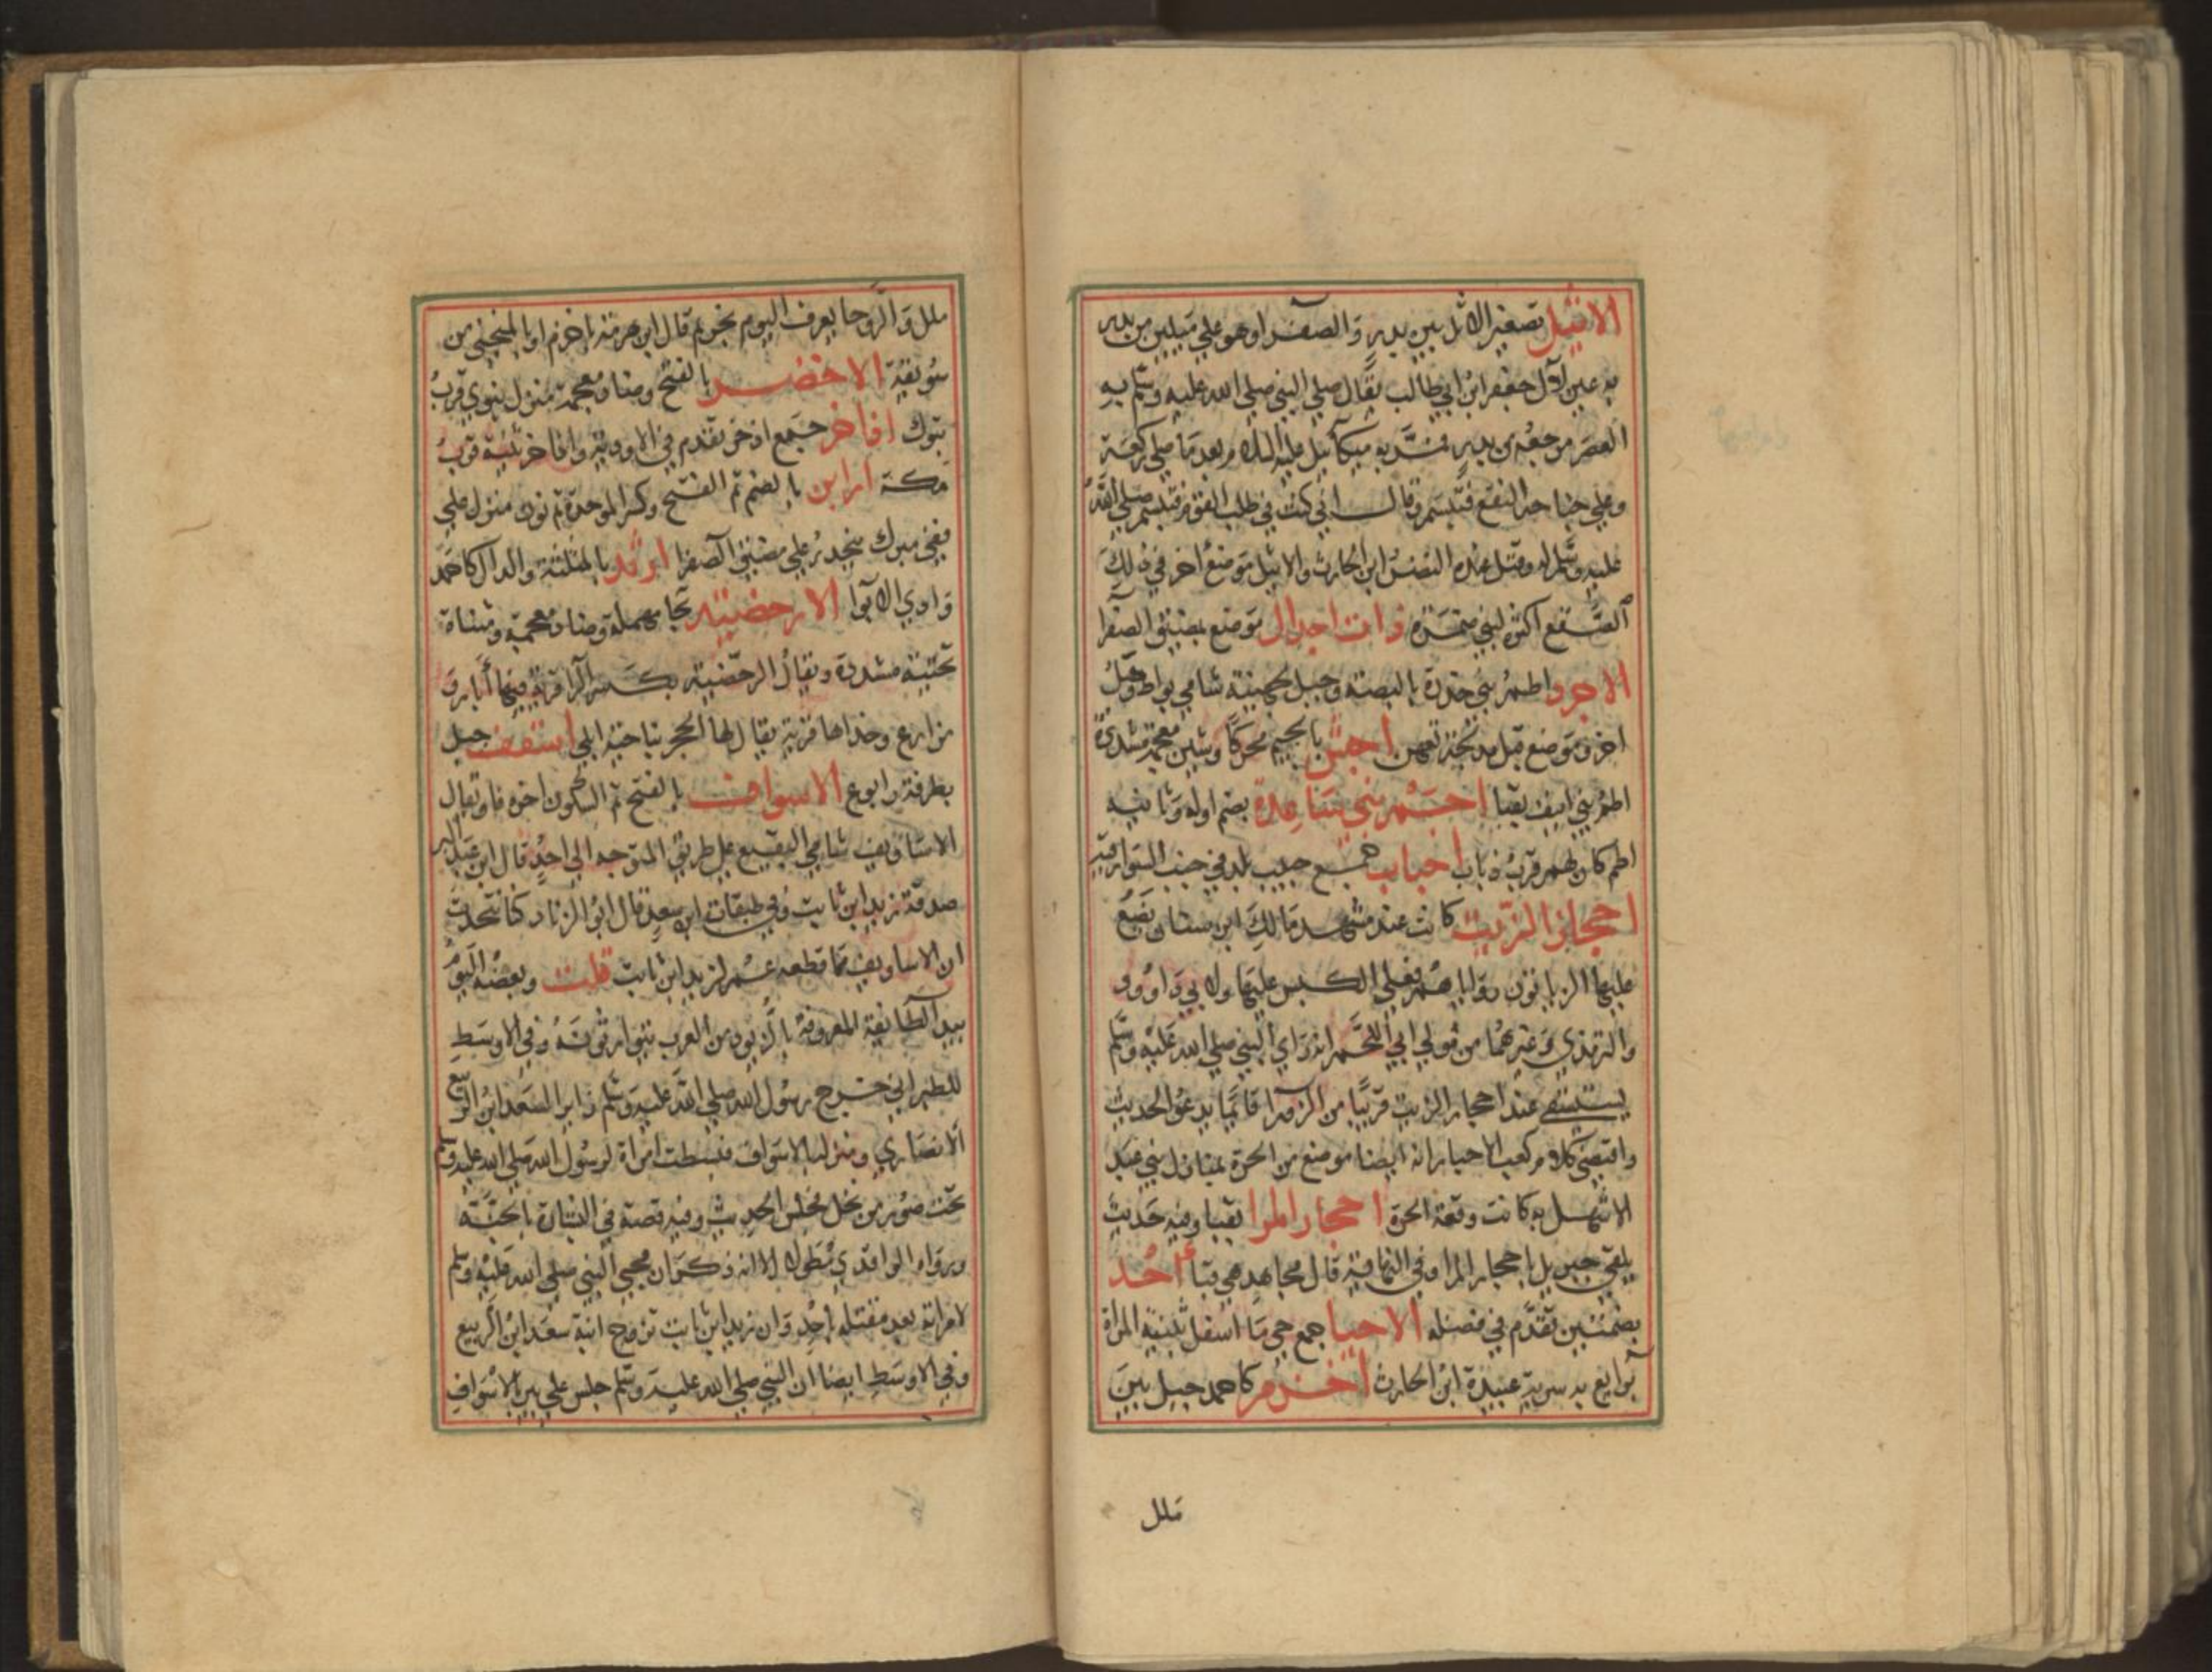 الاثيل تصغير الاثل بين بدر والصفرا وهو علي ميلين من بدر
به عين لآل جعفر ابن ابي طالب يقال صلي النبي صلي الله عليه وسلم به
العصر مرجعه من بدر به ميكآئيل عليه السلام وبعد ما صلي ركعة
وعلي جناحه النقع فتبسم وقال اني كنت في طلب القوم فتبسم صلي الله
عليه وسلم له وقتل عنده النضر ابن الحارث والاثيل موضع اخر في ذلك
الصقع اكثره لبني ضمرة ذات اجدال موضع بمضيق الصفرا
الاجرد اطم بني خدرة بالبصة وجبل لجهينة شامي بواط وجبل
اخر وموضع قبل مدلجة تعهن اجش بالجيم محركا وشين معجمة مشددة
اطم بني انيف بقبا اجم بني ساعدة بضم اوله وثانيه
اطم كان لهم قرب ذباب احباب جمع حبيب بلد في جنب السوارقية
احجار الزيت كانت عند مشهد مالك ابن سنان يضع
عليها الزياتون رواياهم فعلي الكبس عليها ولابي داوود
والترمذي وغيرهما من قول ابي اللحم انه راي النبي صلي الله عليه وسلم
يستسقي عند احجار الزيت قريبا من الزورا قائما يدعو الحديث
واقتضي كلام كعب الاحبار انه ايضا موضع من الحرة بمنازل بني عبد
الاشهل به كانت وقعة الحرة احجار المرا بقبا وفيه حديث
يلقي جبريل باحجار المرا وفي النهاية قال مجاهد هي قبا أحد
بضمتين تقدم في فضله الاحيا جمع حي ما اسفل ثنية المرأة
برابغ به سرية عبيدة ابن الحارث اخزم كاحمد جبل بين
ملل
ملل والروحا يعرف اليوم قال ابن هرمة باخزم او بالمنحني من
سويقة الاخضر بالفتح وضاد معجمة منزل نبوي قرب
تبوك اذاخر جمع اذخر تقدم في الاودية واذاخر ثنية قرب
مكة ارابن بالضم ثم الفتح وكسر الموحدة ثم نون منزل علي
قفي مبرك ينحدر علي مضيق الصفرا ارثد بالمثلثة والدال كاحمد
وادي الابوا الارحضيه بحا مهملة وضاد معجمة ومثناة
تحتية مشددة ويقال الرحضية بكسر الرا قرية فيها أبار و
مزارع وحذاها قرية يقال لها الحجر بناحية ابلي اسقف جبل
بطرفة رابوع الاسواف بالفتح ثم السكون اخره فا ويقال
الاساويف شامي البقيع علي طريق المتوجه الي احد قال ابن عبد البر
صدقة زيد ابن ثابت وفي طبقات ابن سعد قال ابو الزناد كنا نتحدث
ان الاساويف مما قطعه عمر لزيد ابن ثابت قلت وبعضه اليوم
بيد الطائفة المعروفة بالزيود من العرب يتوارثونه وفي الاوسط
للطبراني خرج رسول الله صلي الله عليه وسلم زايرا لسعد ابن الربيع
الانصاري ومنزله بالاسواف فبسطت امراة لرسول الله صلي الله عليه وسلم
تحت صور من نخل فجلس الحديث وفيه قصة في البشارة بالجنة
ورواه الواقدي مطولا الا انه ذكر ان مجي النبي صلي الله عليه وسلم
لامراته بعد مقتله باحد وان زيد ابن ثابت تزوج ابنة سعد ابن الربيع
وفي الاوسط ايضا ان النبي صلي الله عليه وسلم جلس علي بير بالاسواف